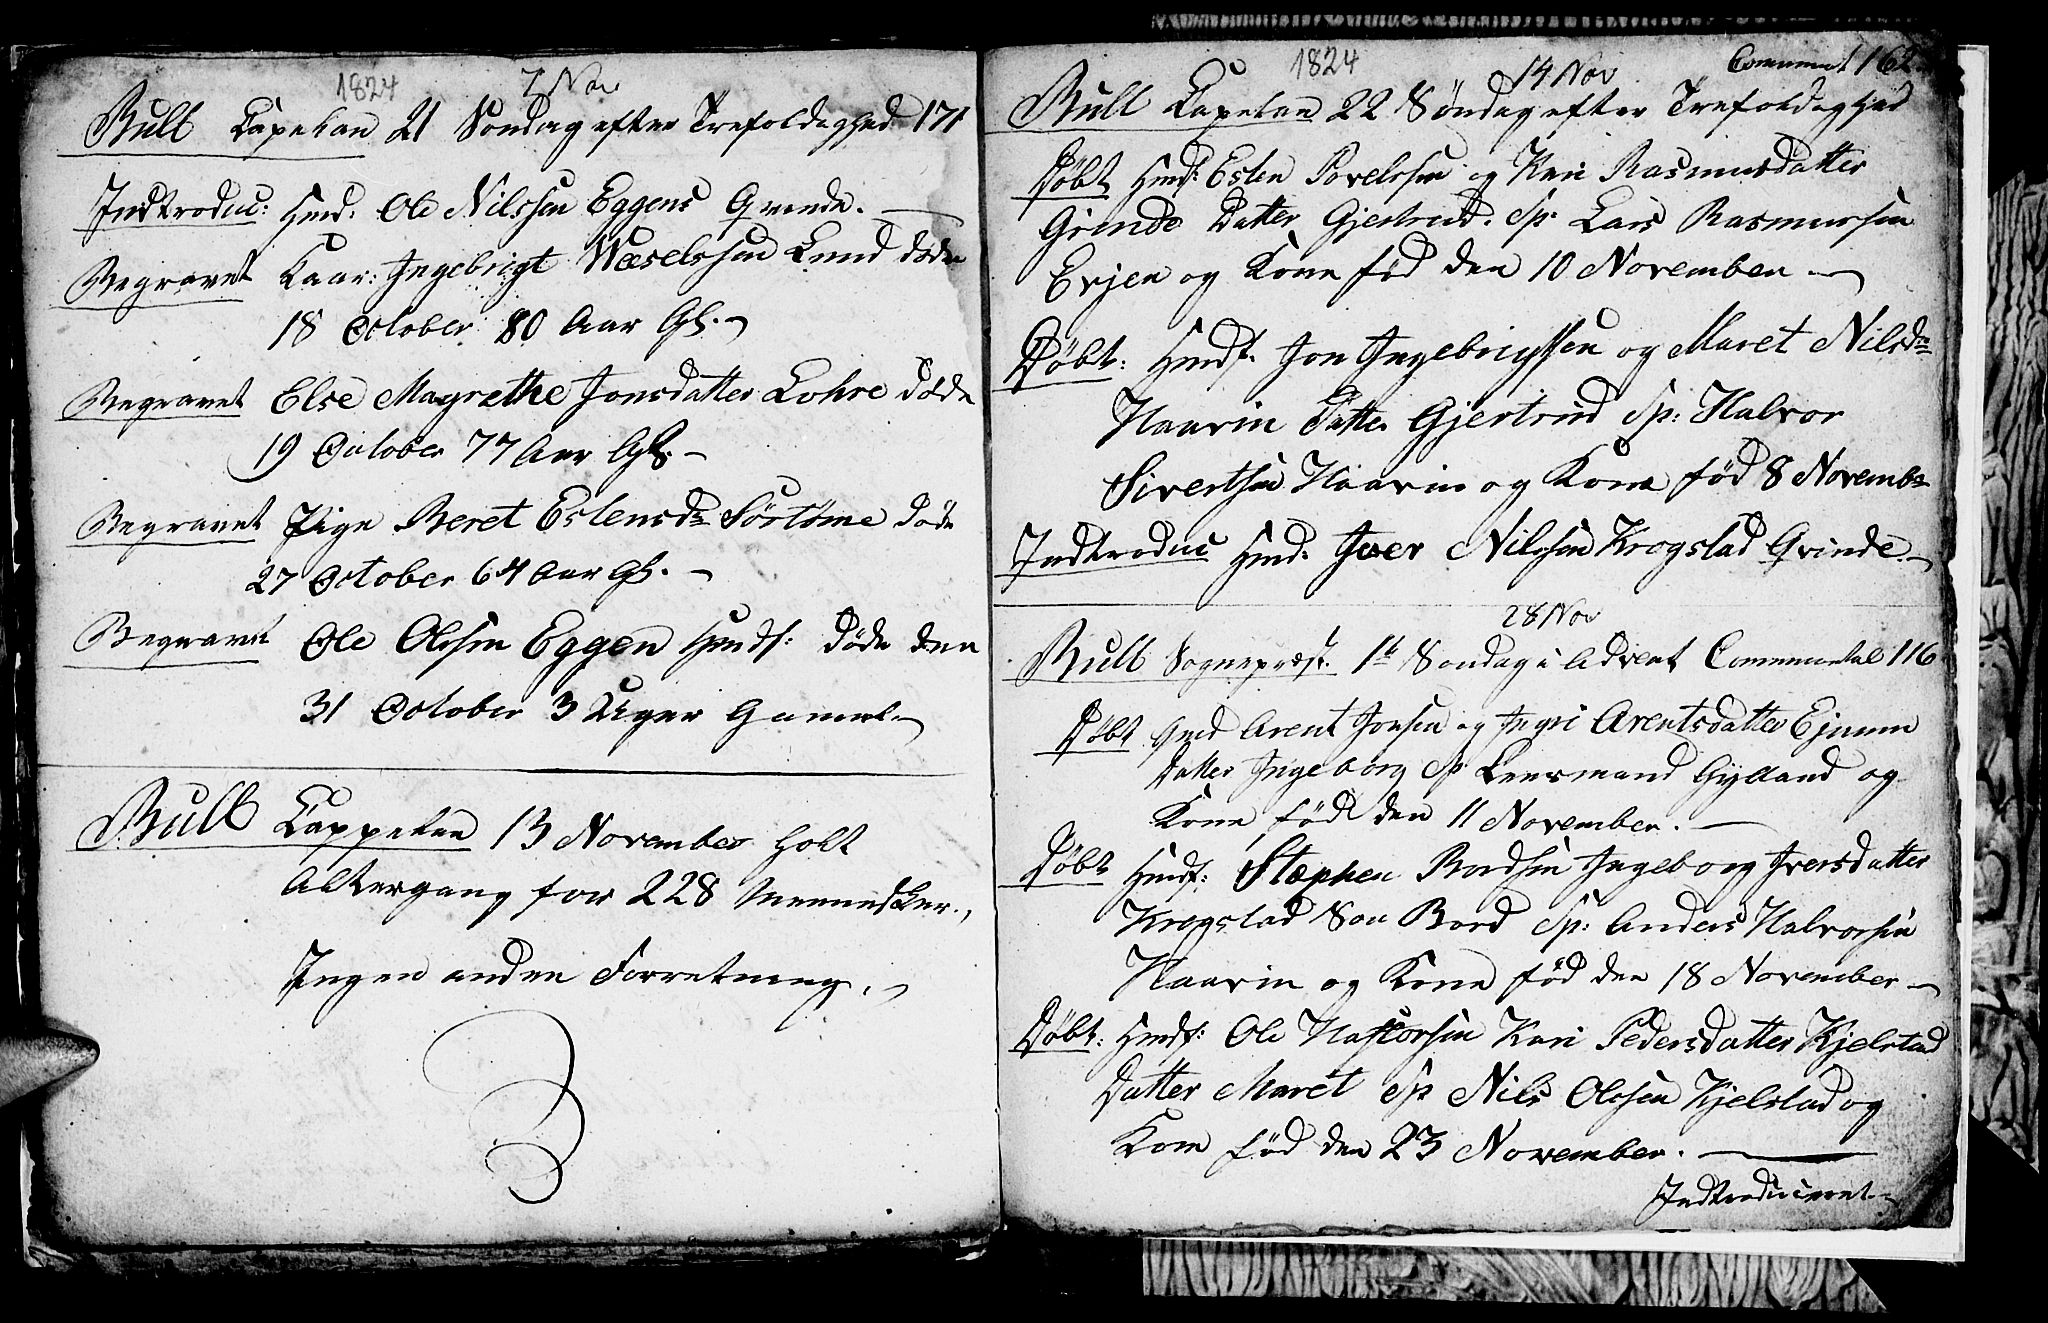 1824 7 Nov
Bull Capelan 21 Søndag efter Trefoldighed 171
Indtroduc: Hmd: Ole Nilssen Eggens Qvinde.
Begravet Kaar: Ingebrigt Wæselssen Lund døde
18 October 80 Aar Gl.
Begravet Else Magrethe Jonsdatter Lohre døde
19 October 77 Aar Gl.
Begravet Pige Beret Estensdr Sørtøme døde
27 October 64 Aar Gl.
Begravet Ole Olssen Eggen Hmdf: døde den
31 October 3 Uger Gammel
Bull Cappelan 13 November holt
Altergang for 228 Mennesker.,
Ingen anden Forretning.
1824 14 Nov Communt 162
Bull Capelan 22 Søndag efter Trefoldighed
Døbt Hmdf: Esten Povelssen og Kari Rasmusdatter
Grinde Datter Gjertrud. Sp: Lars Rasmussen
Evjen og Kone fød den 10 November
Døbt: Hmdf. Jon Ingebrigtssen og Maret Nilsdr
Haavin Datter Gjertrud Sp: Halvor
Sivertsen Haavin og Kone fød 8 Novembr
Indtroduc Hmd: Iver Nilssen Krogstad Qvinde.
28 Nov
Bull Sognepræst. 1te Søndag i Advent Communtal 116
Døbt Hmd Arent Jonsen og Ingri Arentsdatter
Datter Ingeborg Sp Lensmand Gylland og
Kone fød den 11 November.
Døbt Hmdf: Stæphen Bordsen Ingeborg Iversdatter
Krogstad Søn Bord Sp: Anders Halvorsen
Haavin og Kone fød den 18 November
Døbt: Hmdf: Ole Haftorsen Kari Pedersdatter Kjelstad
Datter Maret Sp Nils Olssen Kjelstad og
Kone fød den 23 November.
Indtroduceret